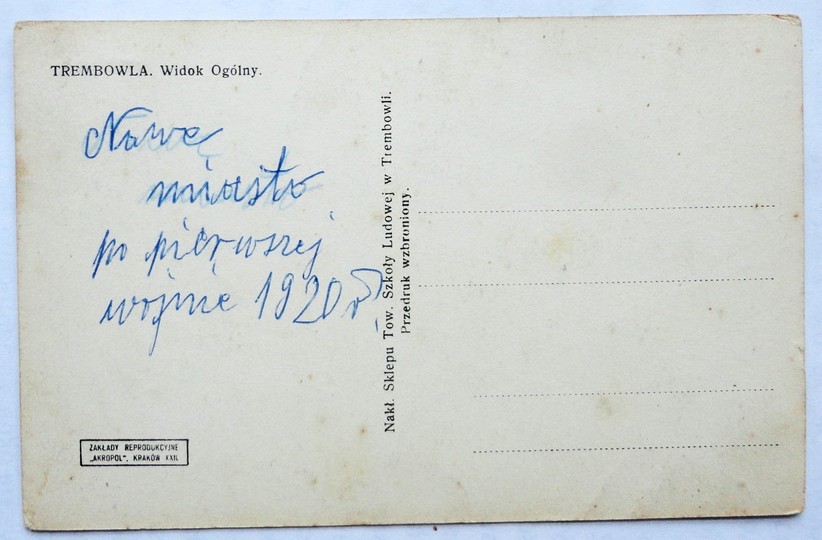 TREMBOWLA. Widok Ogólny.
Nowe
miasto
po pierwszej
wojnie 1920 r.
Nakł. Sklepu Tow. Szkoły Ludowej w Trembowli.
Przedruk wzbroniony.
ZAKŁADY REPRODUKCYJNE
„AKROPOL”, KRAKÓW XXII.